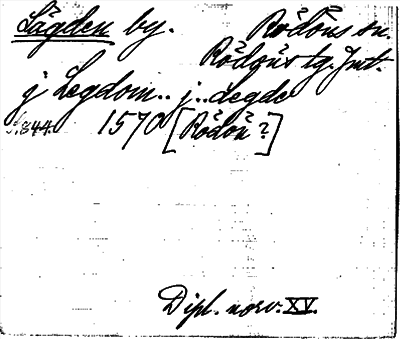 Lägden by. Rödöns sn.
Rödöns tg. Jmt.
j Legdom .. j .. degde
s. 844. 1570 [Rödön?]
Dipl. norv. XV.